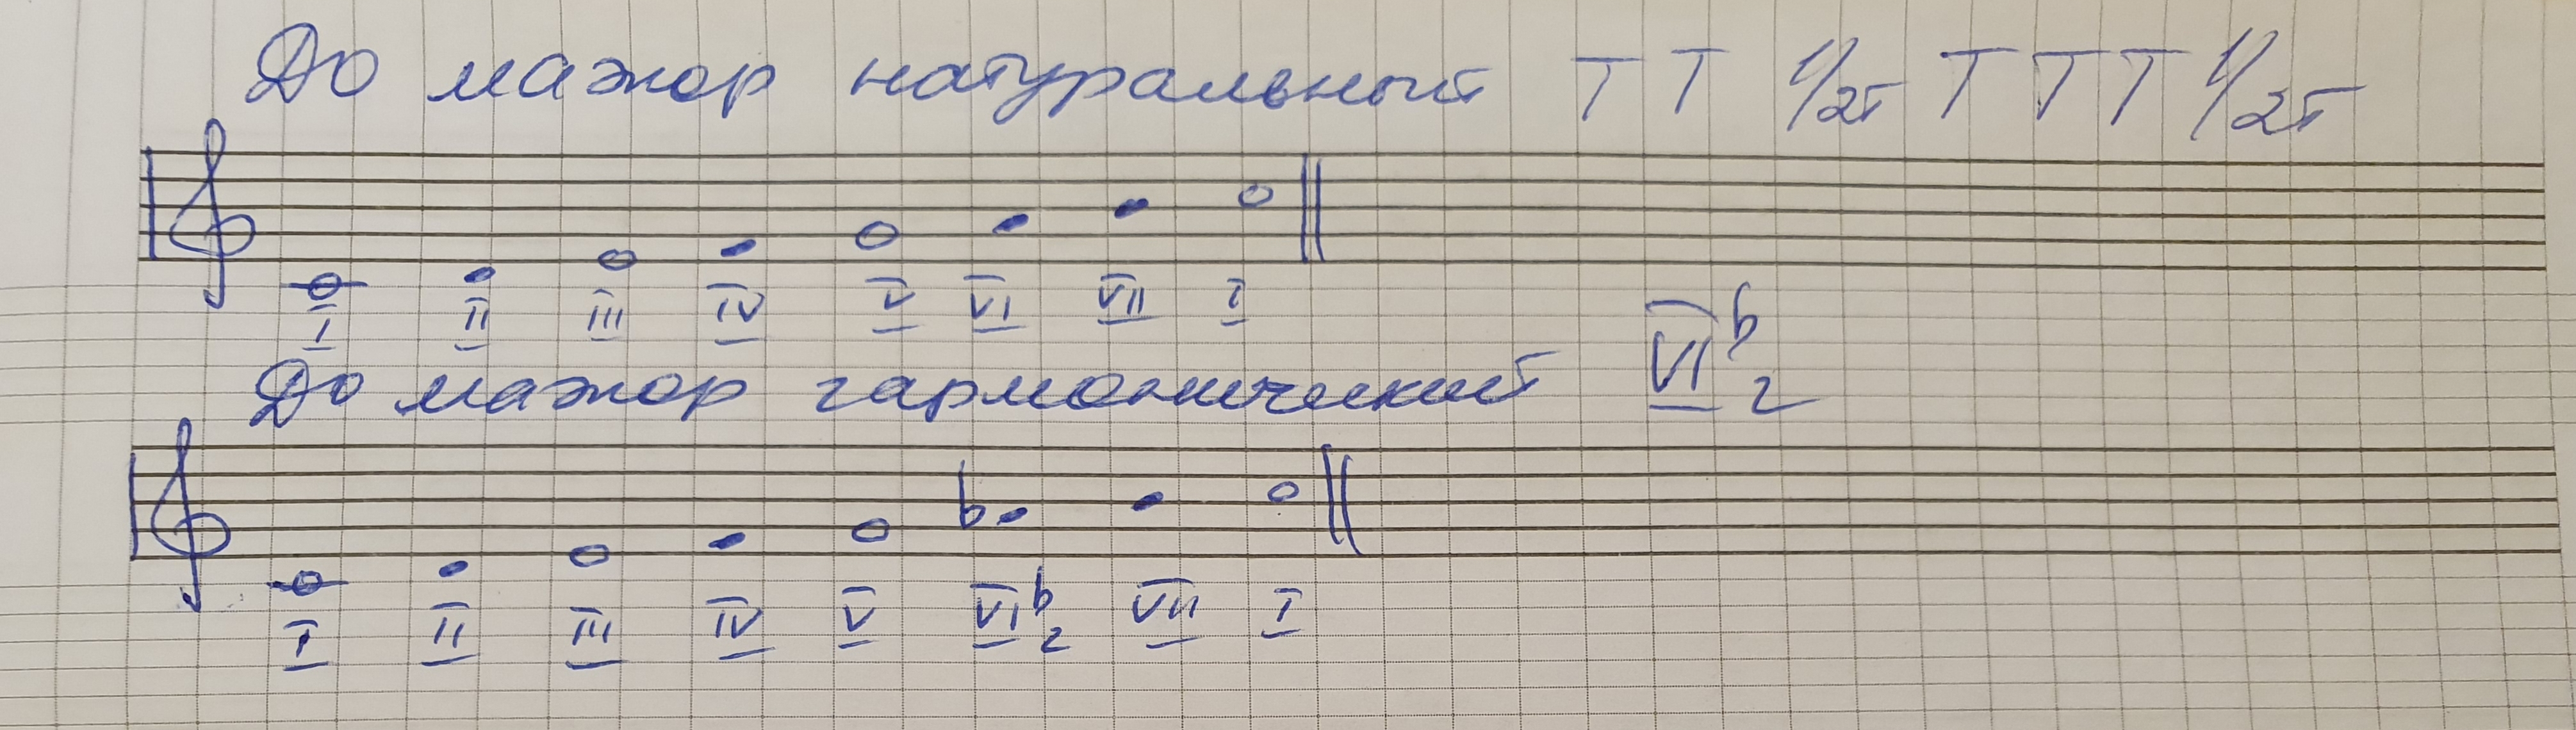 До мажор натуральный Т Т 1/2т Т Т Т 1/2т
I II III IV V VI VII I
До мажор гармонический VI♭г
I II III IV V VI♭г VII I